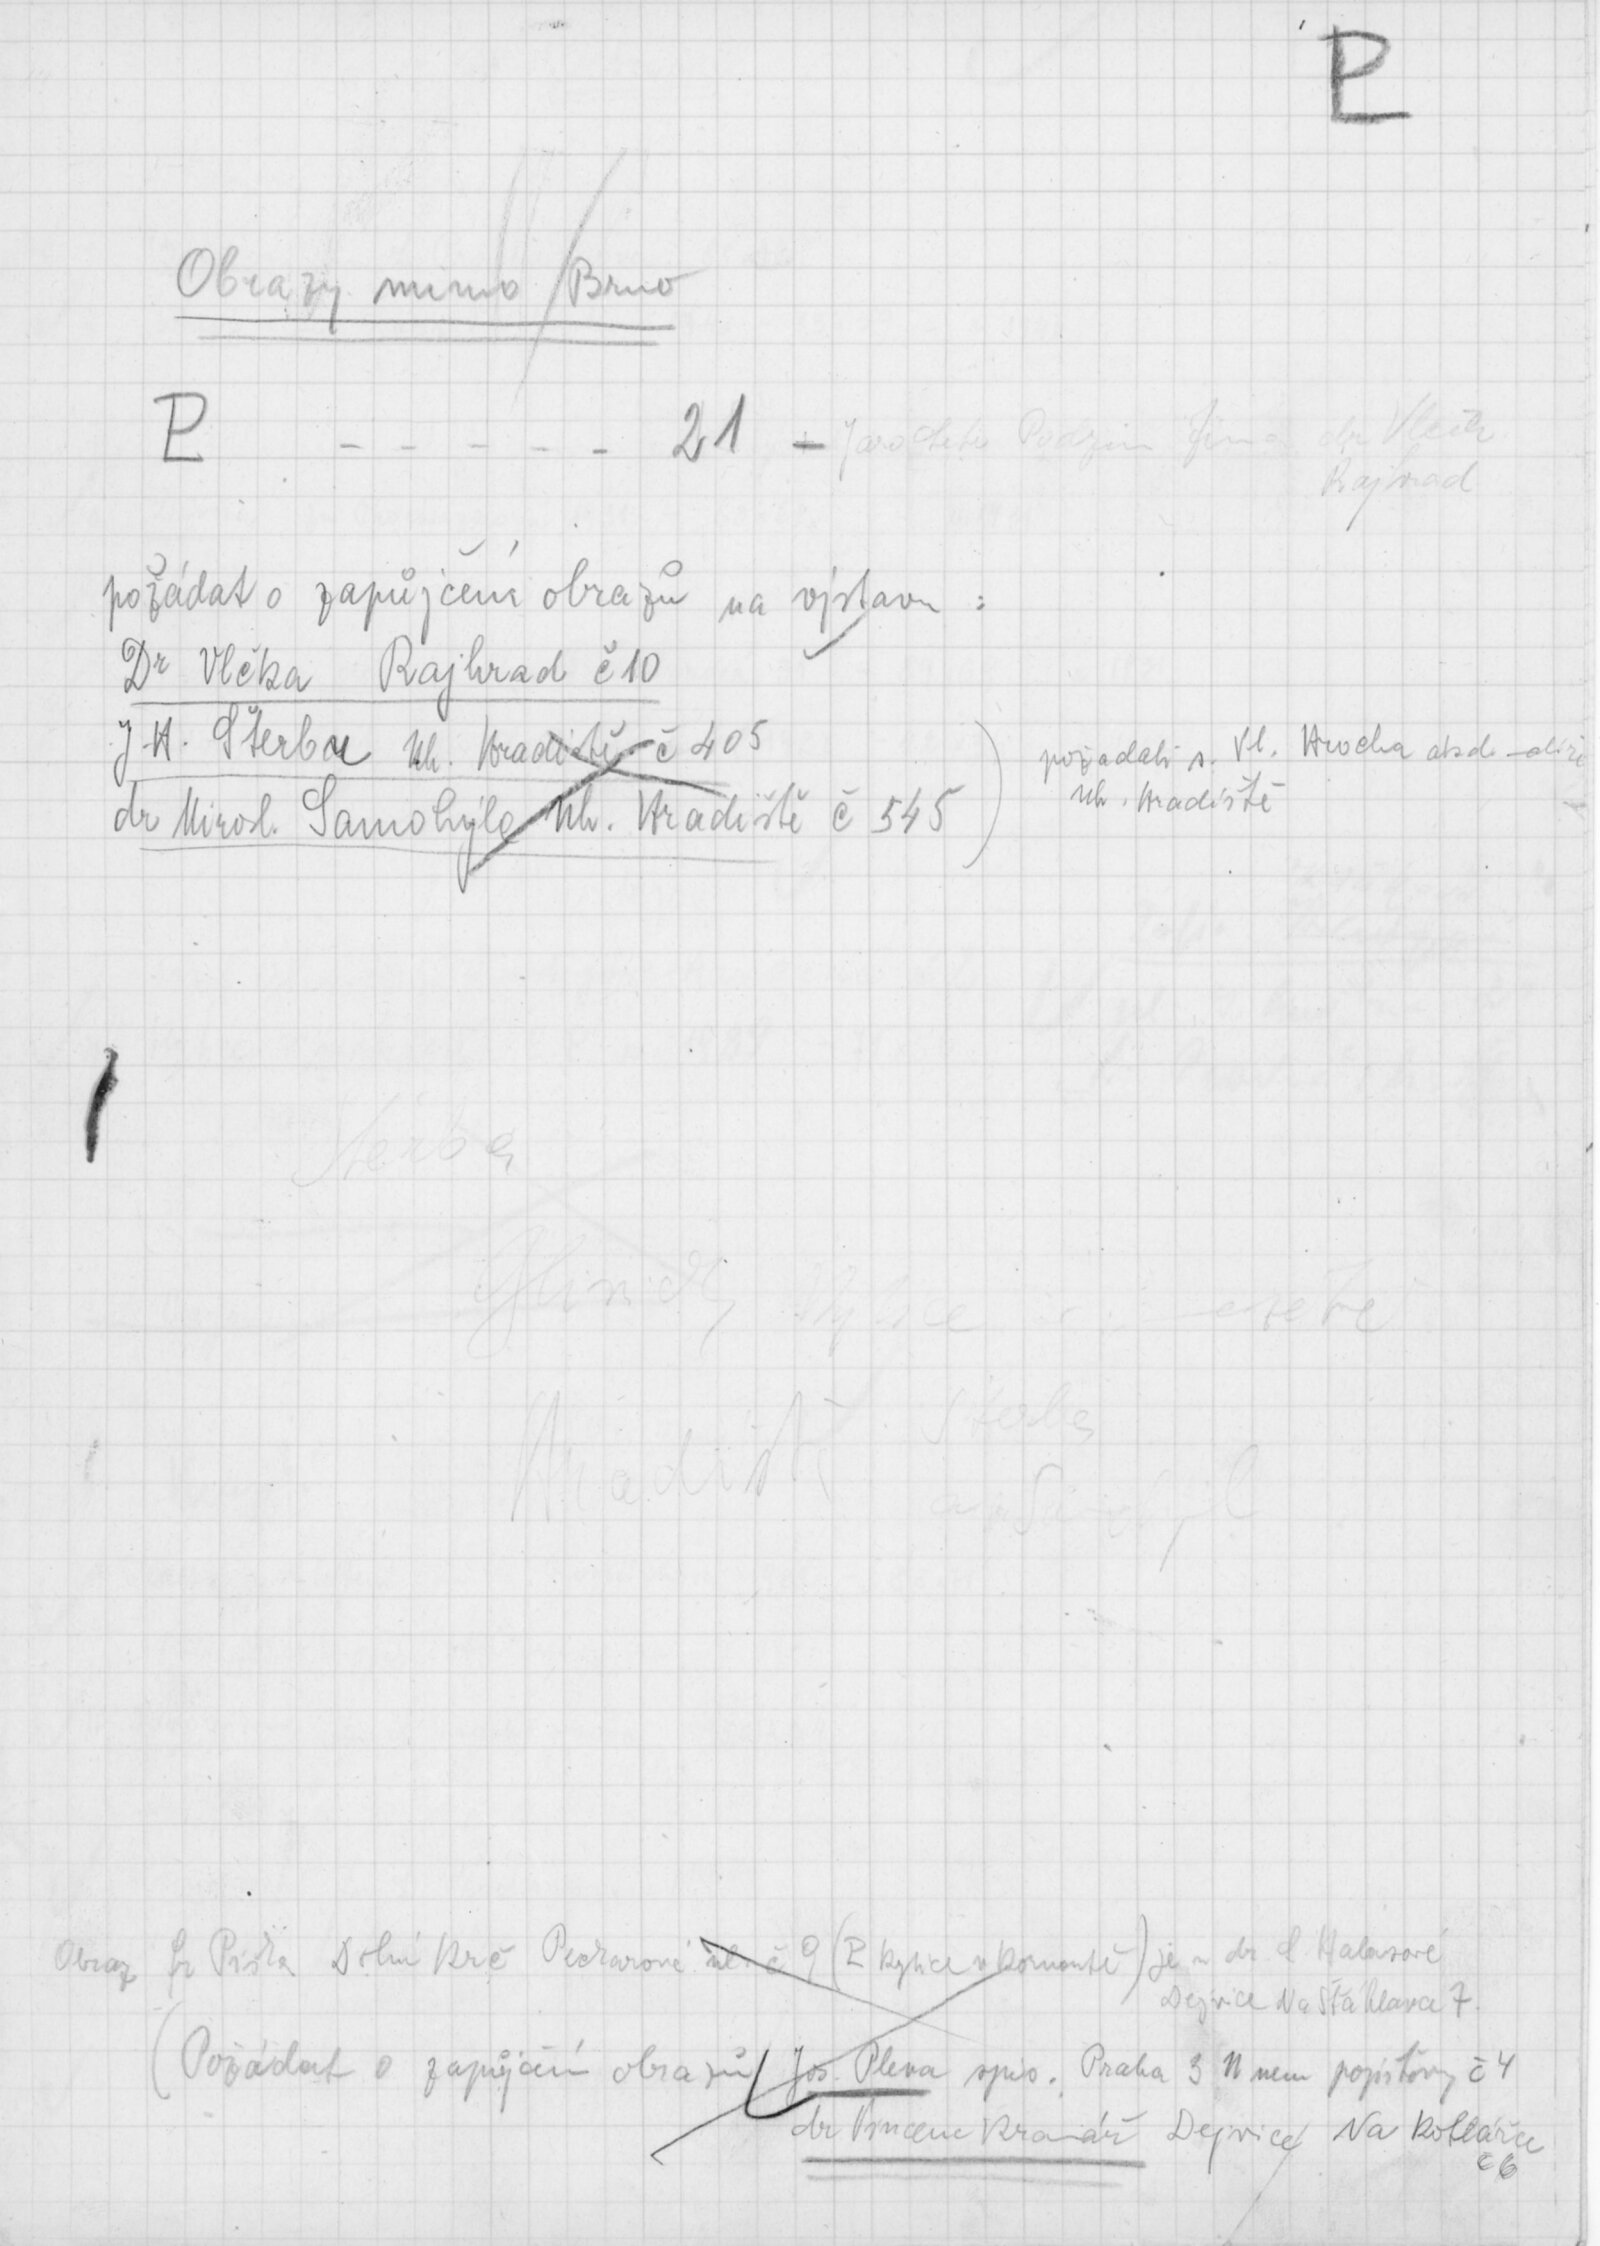 P
Obrazy mimo Brno
P - - - - - 21 - Jaro Léto Podzim Zima dr Vlček
Rajhrad
požádat o zapůjčení obrazů na výstavu :
Dr Vlčka Rajhrad č 10
J.H. Šterbu Uh. Hradiště č 405
dr Mirosl. Samohýla Uh. Hradiště č 545
požádati s. Vl. Hrocha akad.
Uh. Hradiště
Štěrba
Hradiště Štěrba
Obraz Fr Píška Dolní Krč ul. č 9 (P kytice v kornoutě) je u dr Halasové
Dejvice Na Šťáhlavce 7.
(Požádat o zapůjčení obrazů Jos. Pleva spis. Praha 3 nem pojišťovny č 4
dr Vincenc Kramář Dejvice Na Kotlářce
č 6